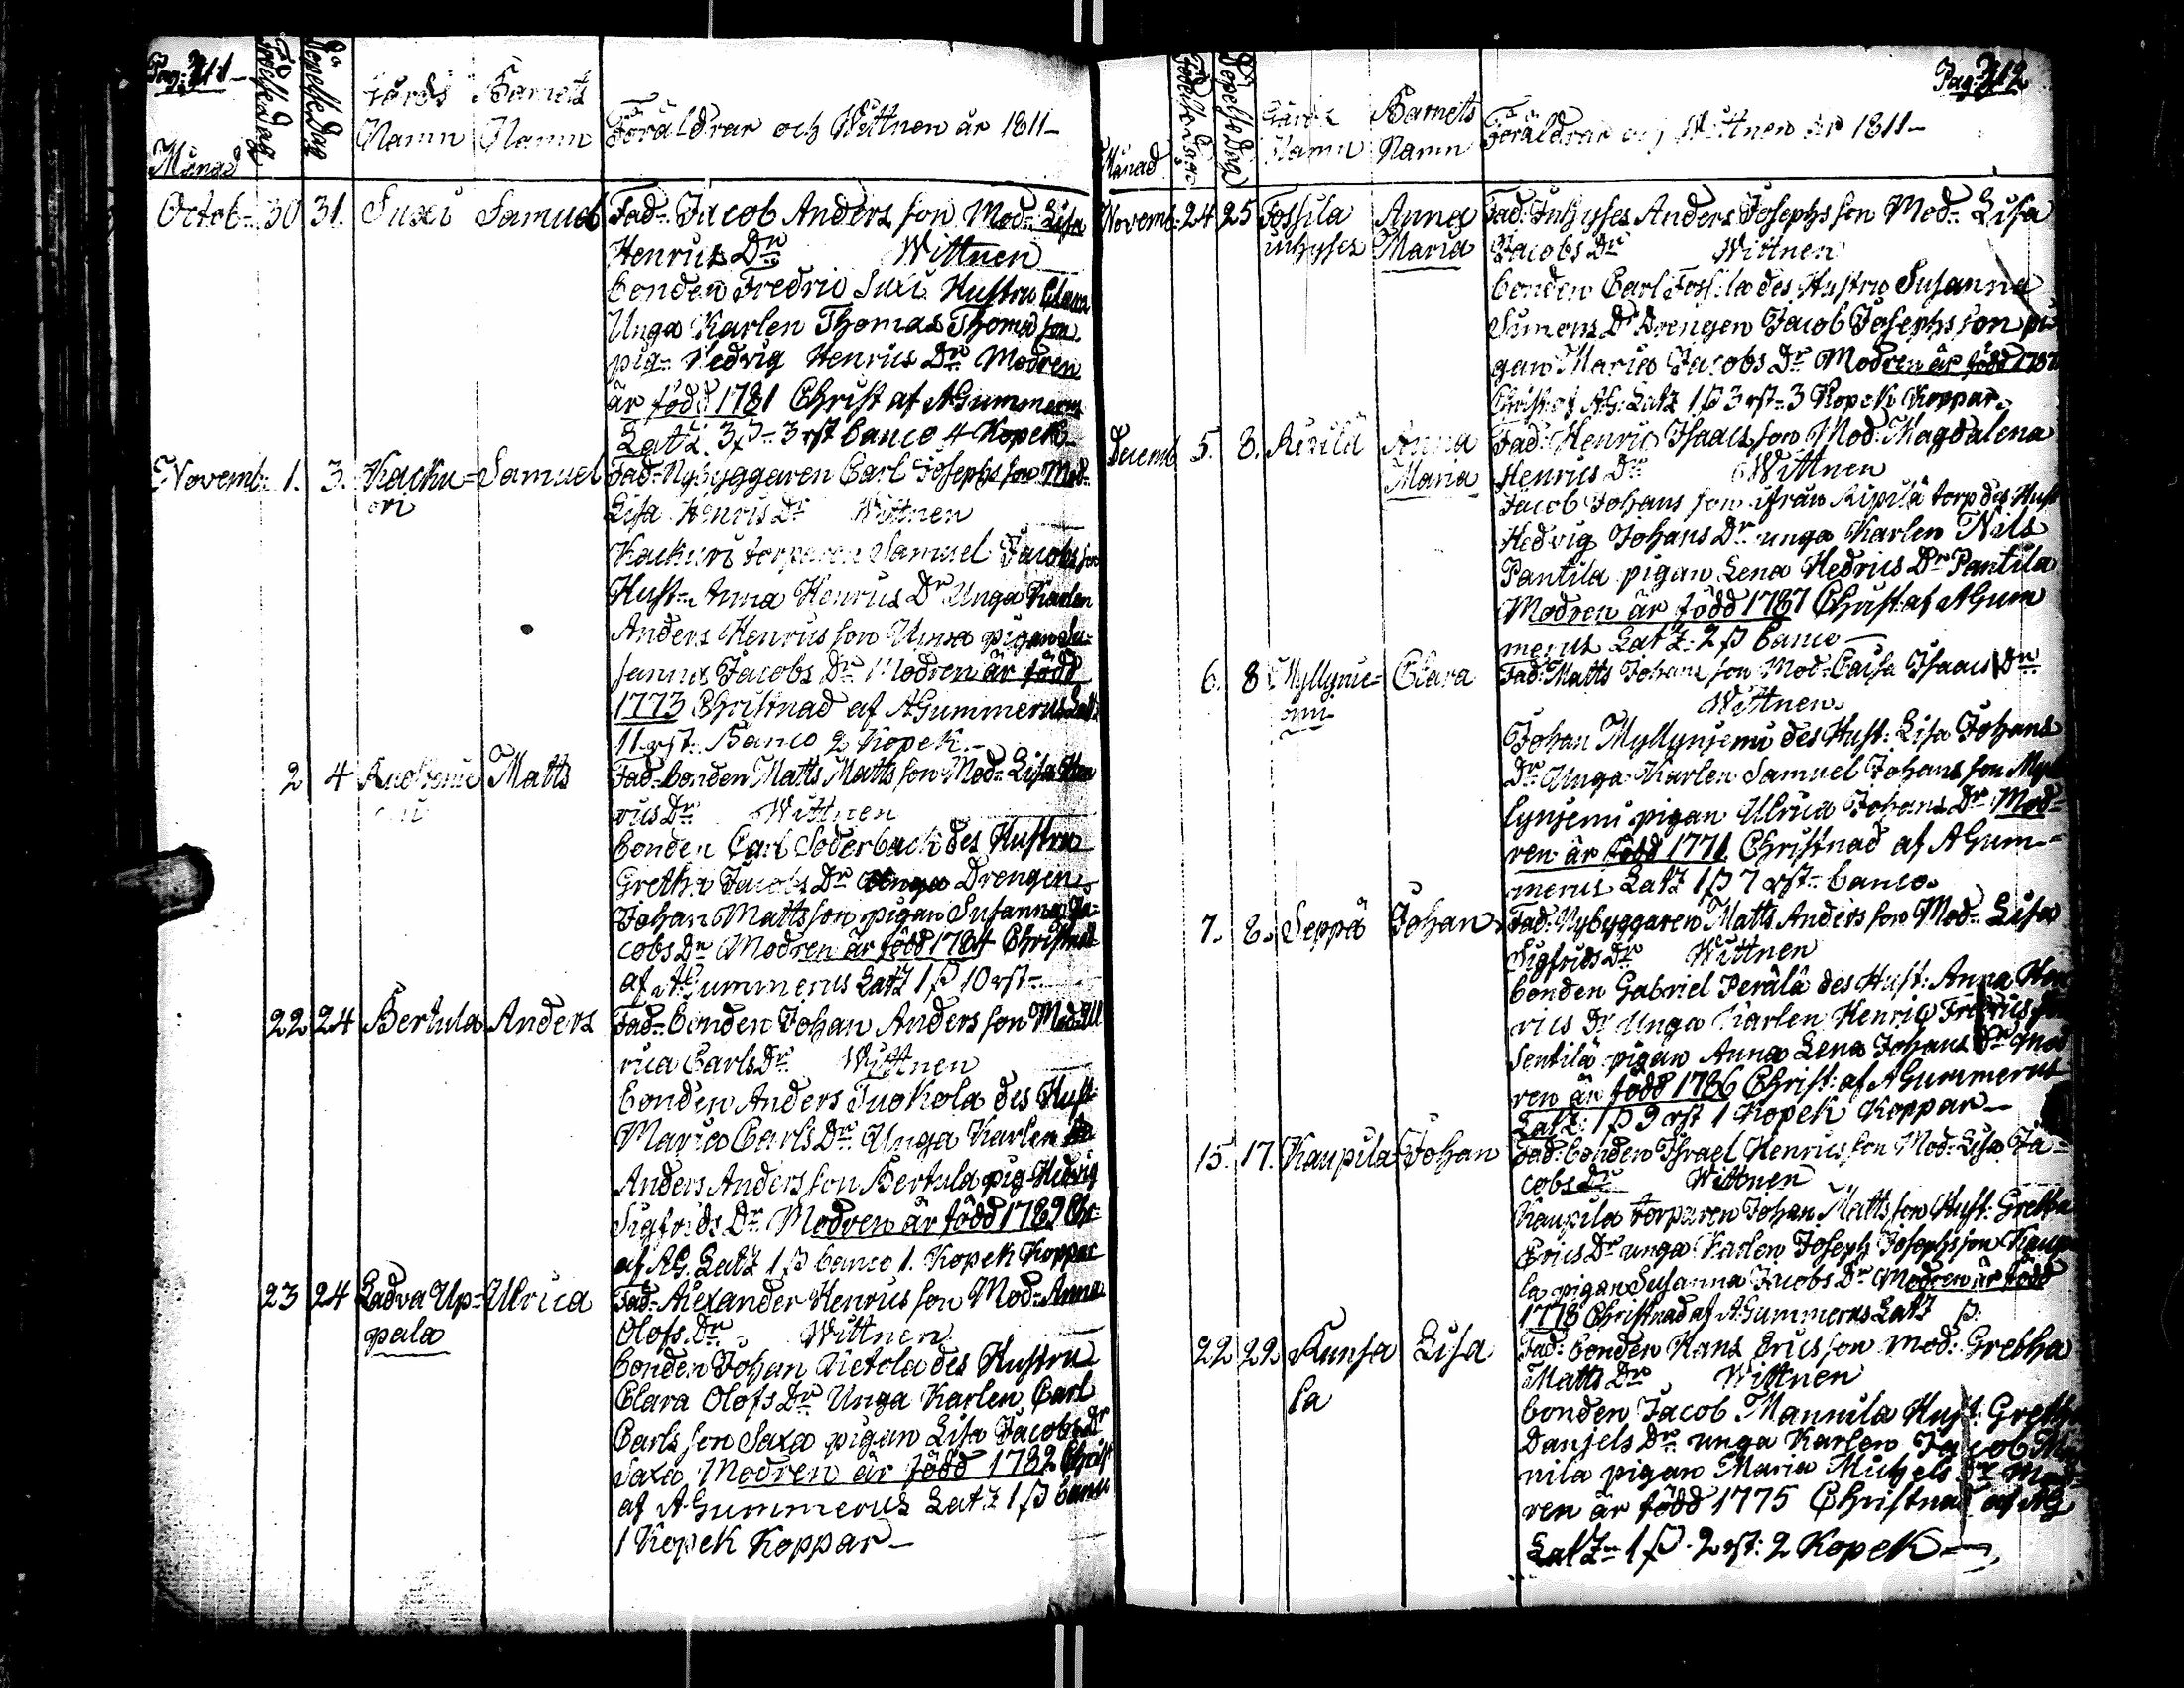 Pag: 311
Månad
Födelse Dag
Döpelse Dag
Gårds Namn
Barnets Namn
Föräldrar och Wittnen år 1811
Octob: 30 31. Suxi Samuel Fad: Jacob Anders son Mod: Lisa
Henrics Dr Wittnen
bonden Fredric Suxi Hustru
Unga Karlen Thomas Thomæ son
pig: Hedvig Henrics Dr Modren
är född 1781 Christ af A Gummerus
Latz: 3 β 3 rst banco 4 Kopek
Novemb: 1. 3. Kacku= Samuel Fad: Nybyggaren Carl Josephs son Mod:
ori Lisa Henrics Dr Wittnen
Kackuri torparen Samuel Jacobs son
Hust: Anna Henrics Dr Unga Karlen
Anders Henrics son pigan Su=
sanna Jacobs Dr Modren är född
1773 Christnad af A Gummerus Latz
11 rst: Banco 2 Kopek
2 4 Matts Fad: bonden Matts Matts son Mod: Lisa Hen
rics Dr Wittnen
bonden Carl Söderback des Hustru
Gretha Jacobs Dr Drengen
Johan Matts son pigan Susanna Ja=
cobs Dr Modren är född 1784 Christnad
af A Gummerus Latz 1 β 10 rst
22 24 Bertula Anders Fad: bonden Johan Anders son Mod: Ul
rica Carls Dr Wittnen
bonden Anders Tuokola des Hust:
Maria Carls Dr Unga Karlen
Anders Anders son Bertula pig: Hedvig
Sigfrids Dr Modren är född 1789 Chr:
af AG. Latz 1 β banco 1. Kopek Koppar
23 24 Ladva Up= Ulrica Fad: Alexander Henrics son Mod: Anna
pala Olofs Dr Wittnen
bonden Johan Kietola des Hustru
Clara Olofs Dr Unga Karlen Carl
Carls son Saxa pigan Lisa Jacobs Dr
Saxa Modren är född 1782 Christ
af A Gummerus Latz 1 β banco
1 Kopek Koppar
Pag: 312
Månad
Födelse Dag
Döpelse Dag
Gårds Namn
Barnets Namn
Föräldrar och Wittnen år 1811
Novemb: 24 25 Fossila Anna Fad: Inhyses Anders Josephs son Mod: Lisa
inhyses Maria Jacobs Dr Wittnen
bonden Carl Fossila des Hustru Susanna
Simons Dr Drengen Jacob Josephs son pi
gan Maria Jacobs Dr Modren är född
Christ af AG: Latz 1 β 3 rst: 3 Kopek Koppar
Decemb 5. 8. Anna Fad: Henric Isaacs son Mod: Magdalena
Maria Henrics Dr Wittnen
Jacob Johans son ifrån torp des Hust
Hedvig Johans Dr unga Karlen Nils
Pantila pigan Lena Hedrics Dr Pantila
Modren är född 1787 Christ: af A Gum
merus Latz: 2 β banco
6. 8 Myllynie= Clara Fad: Matts Johans son Mod: Caisa Isaacs Dr
mi Wittnen
Johan Myllyniemi des Hust: Lisa Johans
Dr Unga Karlen Samuel Johans son Myl
lyniemi pigan Ulrica Johans Dr Mod=
ren är född 1771 Christnad af A Gum=
merus Latz 1 β 7 rst: banco
7. 8. Seppä Johan Fad: Nybyggaren Matts Anders son Mod: Lisa
Sigfrids Dr Wittnen
bonden Gabriel Perälä des Hust: Anna Hen
rics Dr Unga Karlen Henric
Sentilä pigan Anna Lena Johans Dr Mod
ren är född 1786 Christ: af A Gummerus
Latz: 1 β 9 rst 1 Kopek Koppar
15. 17. Kaupila Johan Fad: bonden Israel Henrics son Mod: Lisa Ja=
cobs Dr Wittnen
Kaupila torparen Johan Matts son Hust: Gretha
Erics Dr unga Karlen Joseph Josephs son Kaupi
la pigan Susanna Jacobs Dr Modren är född
1778 Christnad af A Gummerus Latz β.
22 22 Kunsa Lisa Fad: bonden Hans Erics son Mod: Gretha
la Matts Dr Wittnen
bonden Jacob Mannila Hust: Gretha
Danjels Dr unga Karlen Jacob Man
nila pigan Maria Michels Dr Mod=
ren är född 1775 Christnad af AG
Latz 1 β. 2 rst: 2 Kopek